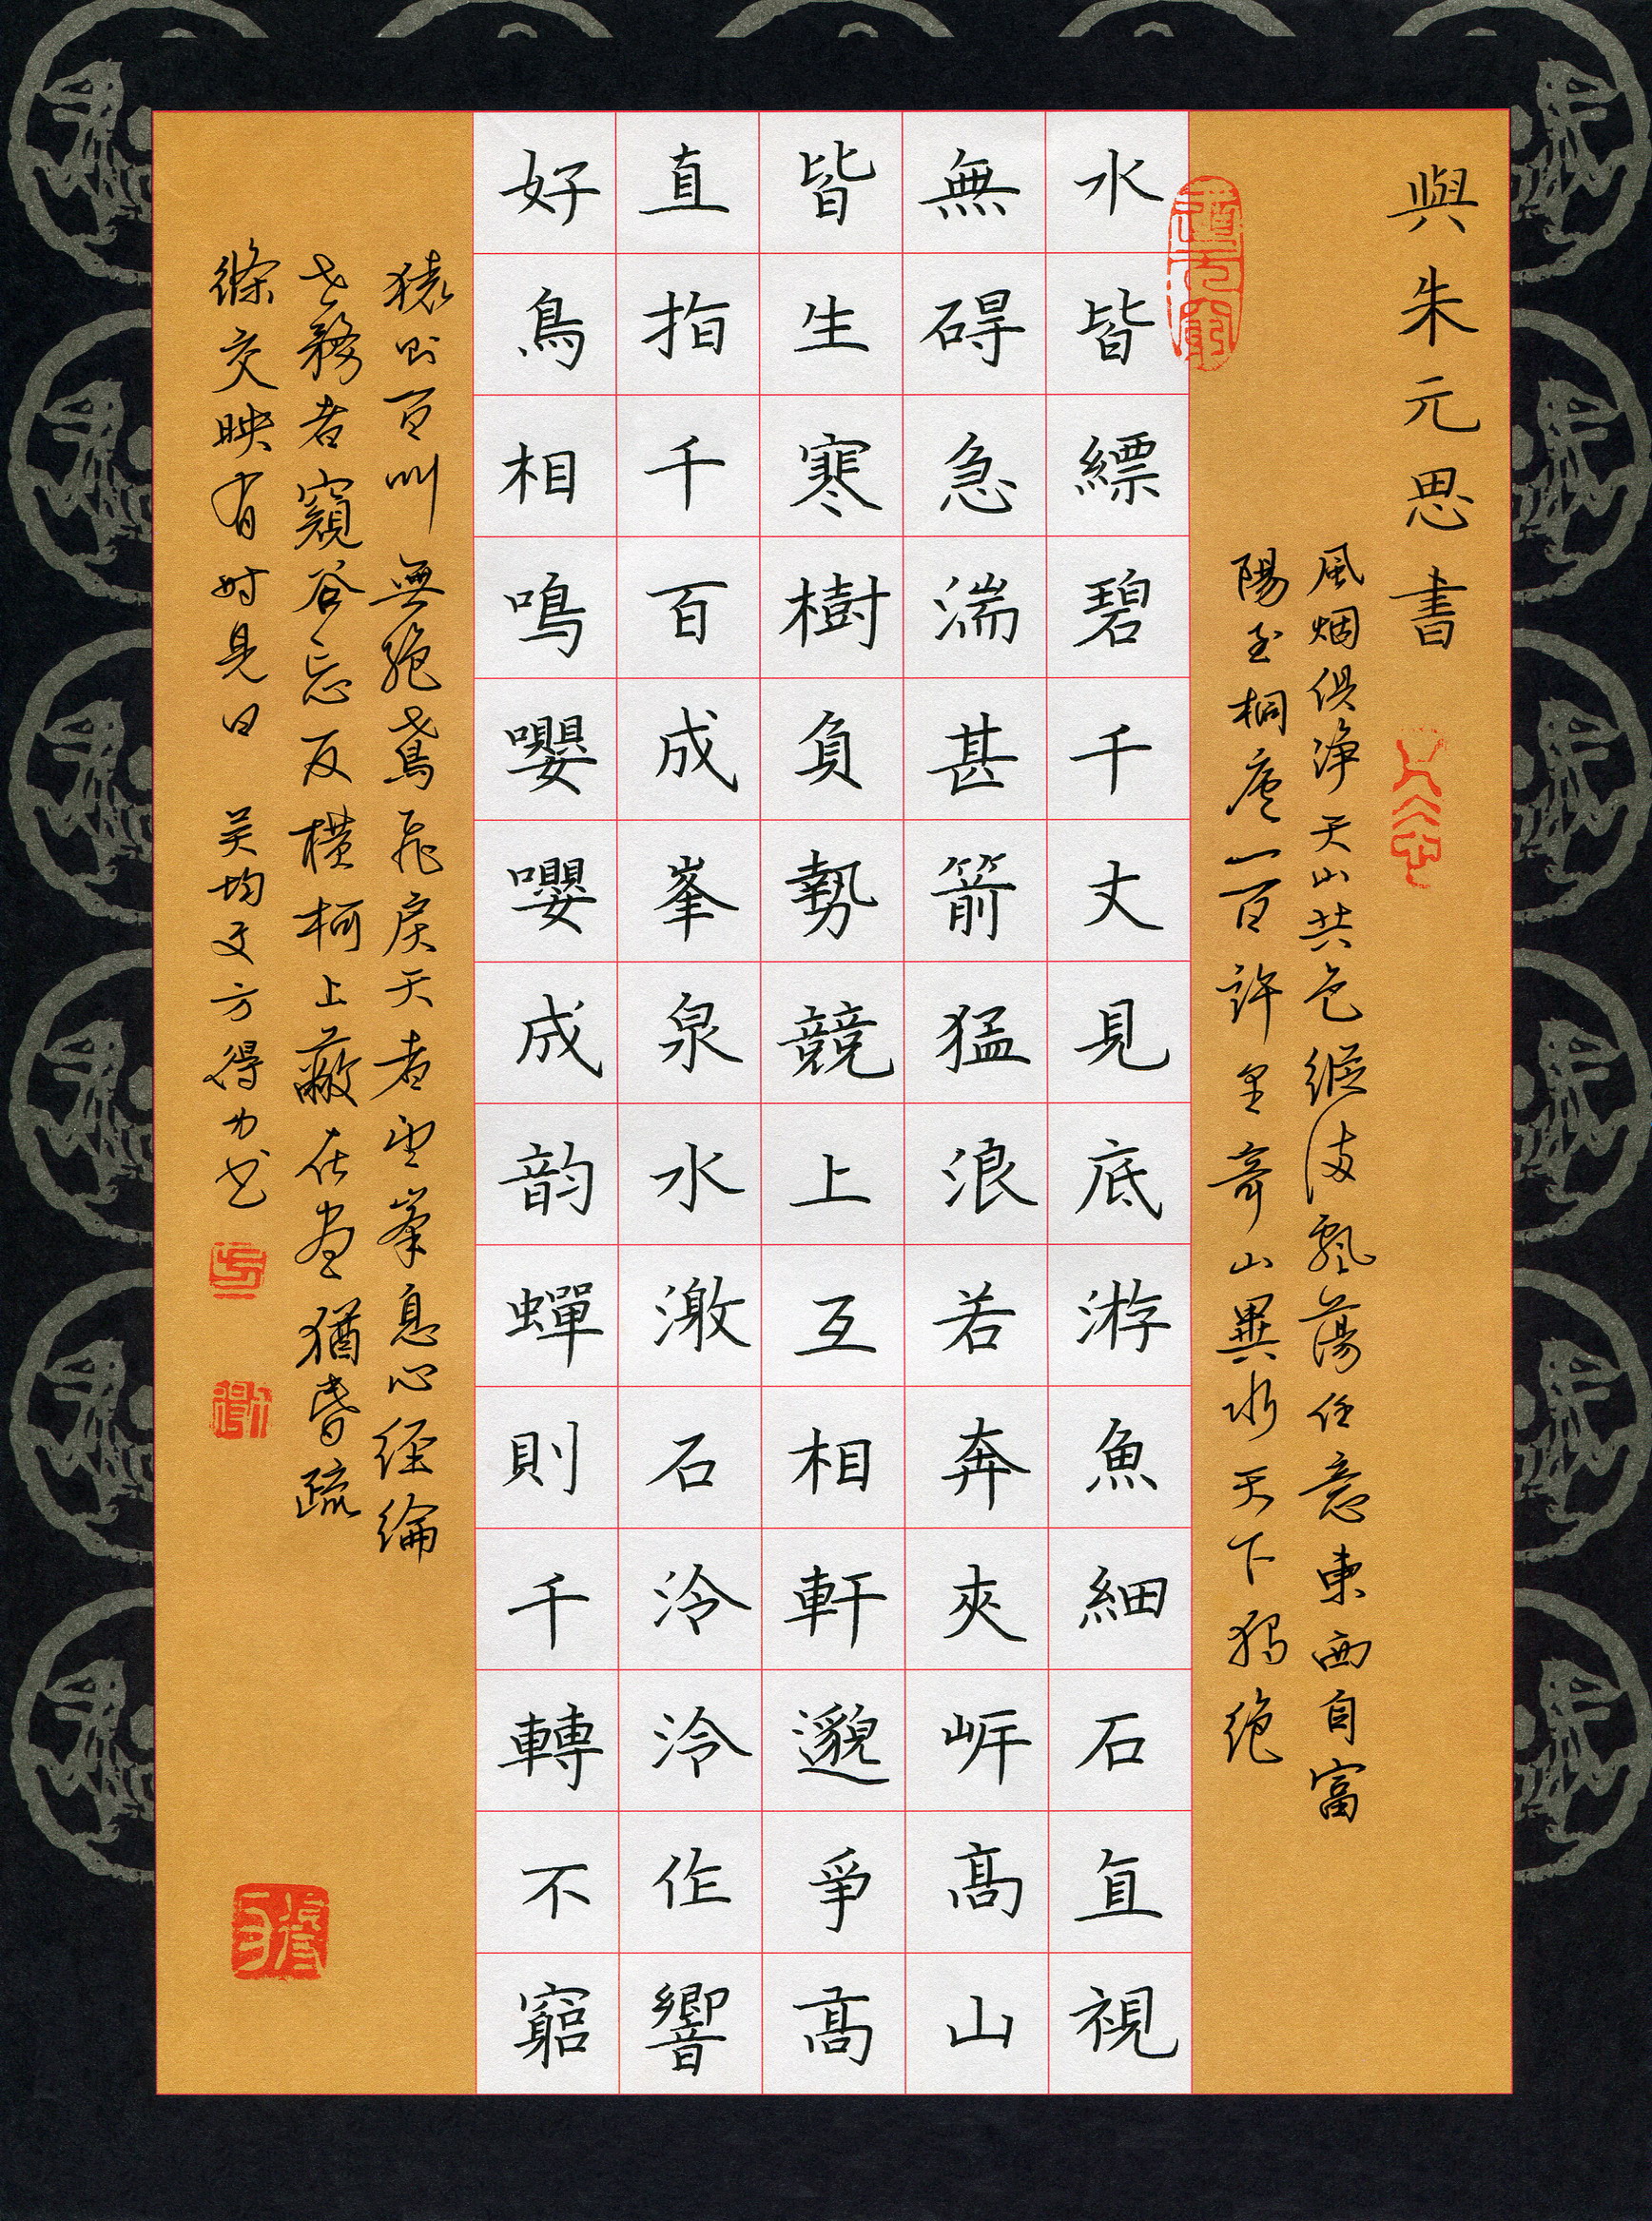 與朱元思書
風烟俱淨天山共色縱流飄蕩任意東西自富
陽至桐廬一百許里奇山異水天下獨绝
水皆縹碧千丈見底游魚細石直視
無碍急湍甚箭猛浪若奔夾岸高山
皆生寒樹負勢競上互相軒邈爭高
直指千百成峯泉水激石泠泠作響
好鳥相鳴嚶嚶成韵蟬則千轉不窮
猿则百叫無絕鳶飛戾天者望峯息心经綸
世務者窺谷忘反橫柯上蔽在昼猶昏疏
條交映有时見日 吴均文方得力书